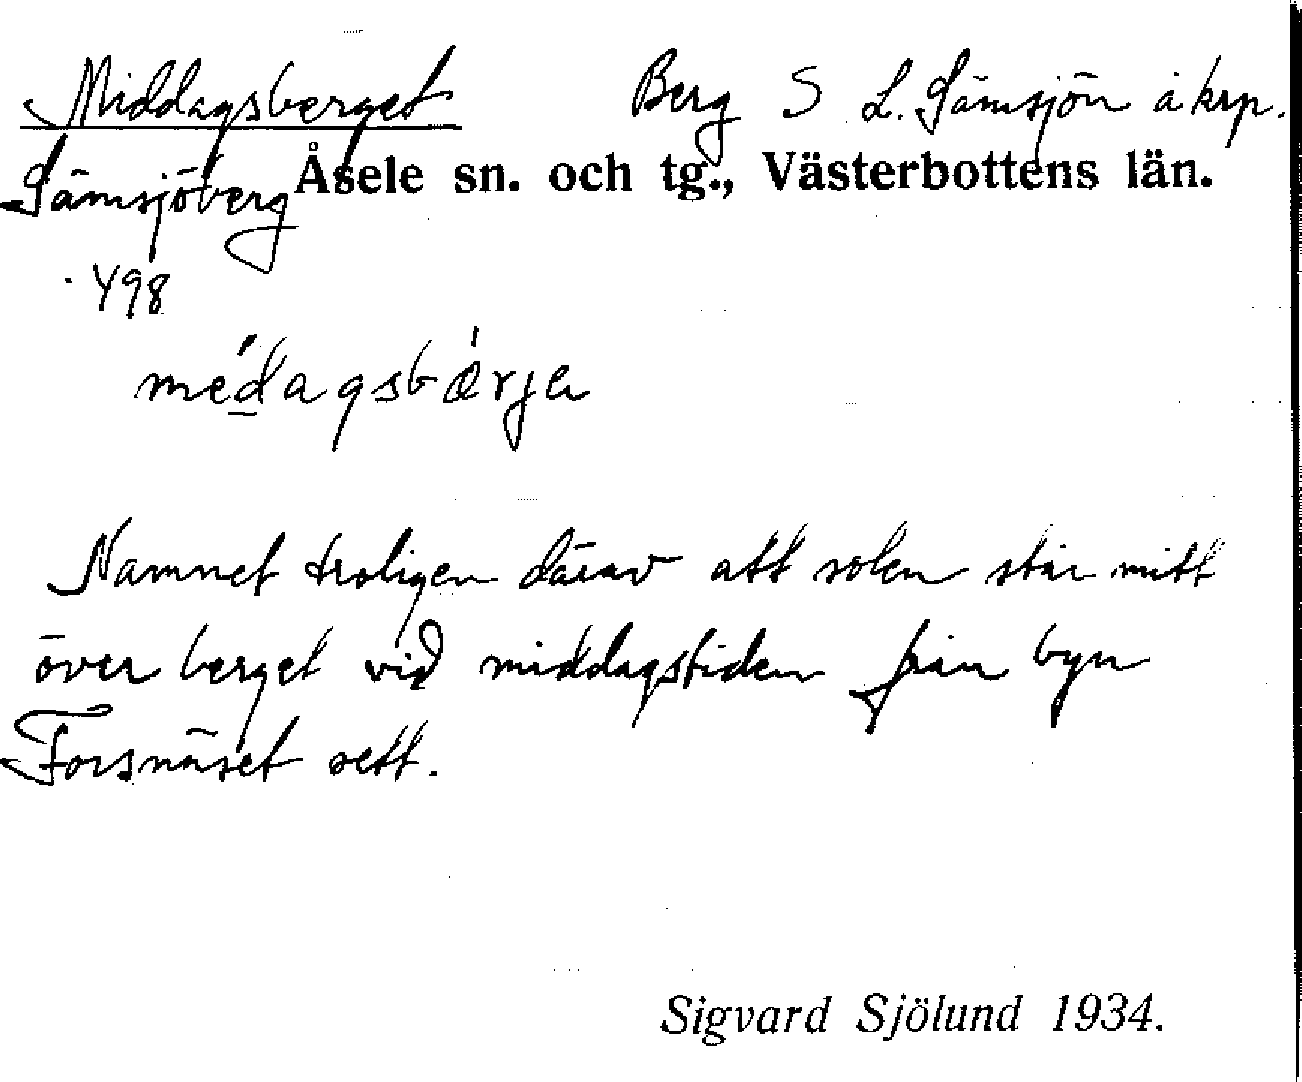 Middagsberget Berg S L. Sämsjön å krp.
Sämsjöberg Åsele sn. och tg., Västerbottens län.
498
médagsbǽrjα
Namnet troligen därav att solen står mitt
över berget vid middagstiden från byn
Forsnäset sett.
Sigvard Sjölund 1934.